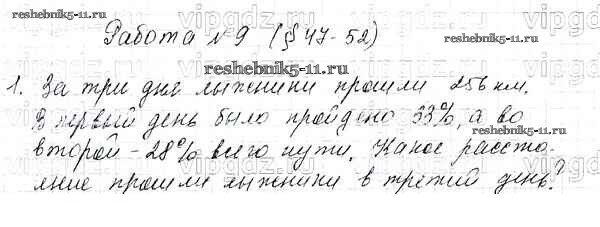 Работа №9 (§ 47-52)
reshebnik5-11.ru
reshebnik5-11.ru
1. За три дня лыжники прошли 256 км.
В первый день было пройдено 33%, а во
reshebnik5-11.ru
второй - 28% всего пути. Какое расстоя-
ние прошли лыжники в третий день?
vipgdz.ru vipgdz.ru vipgdz.ru